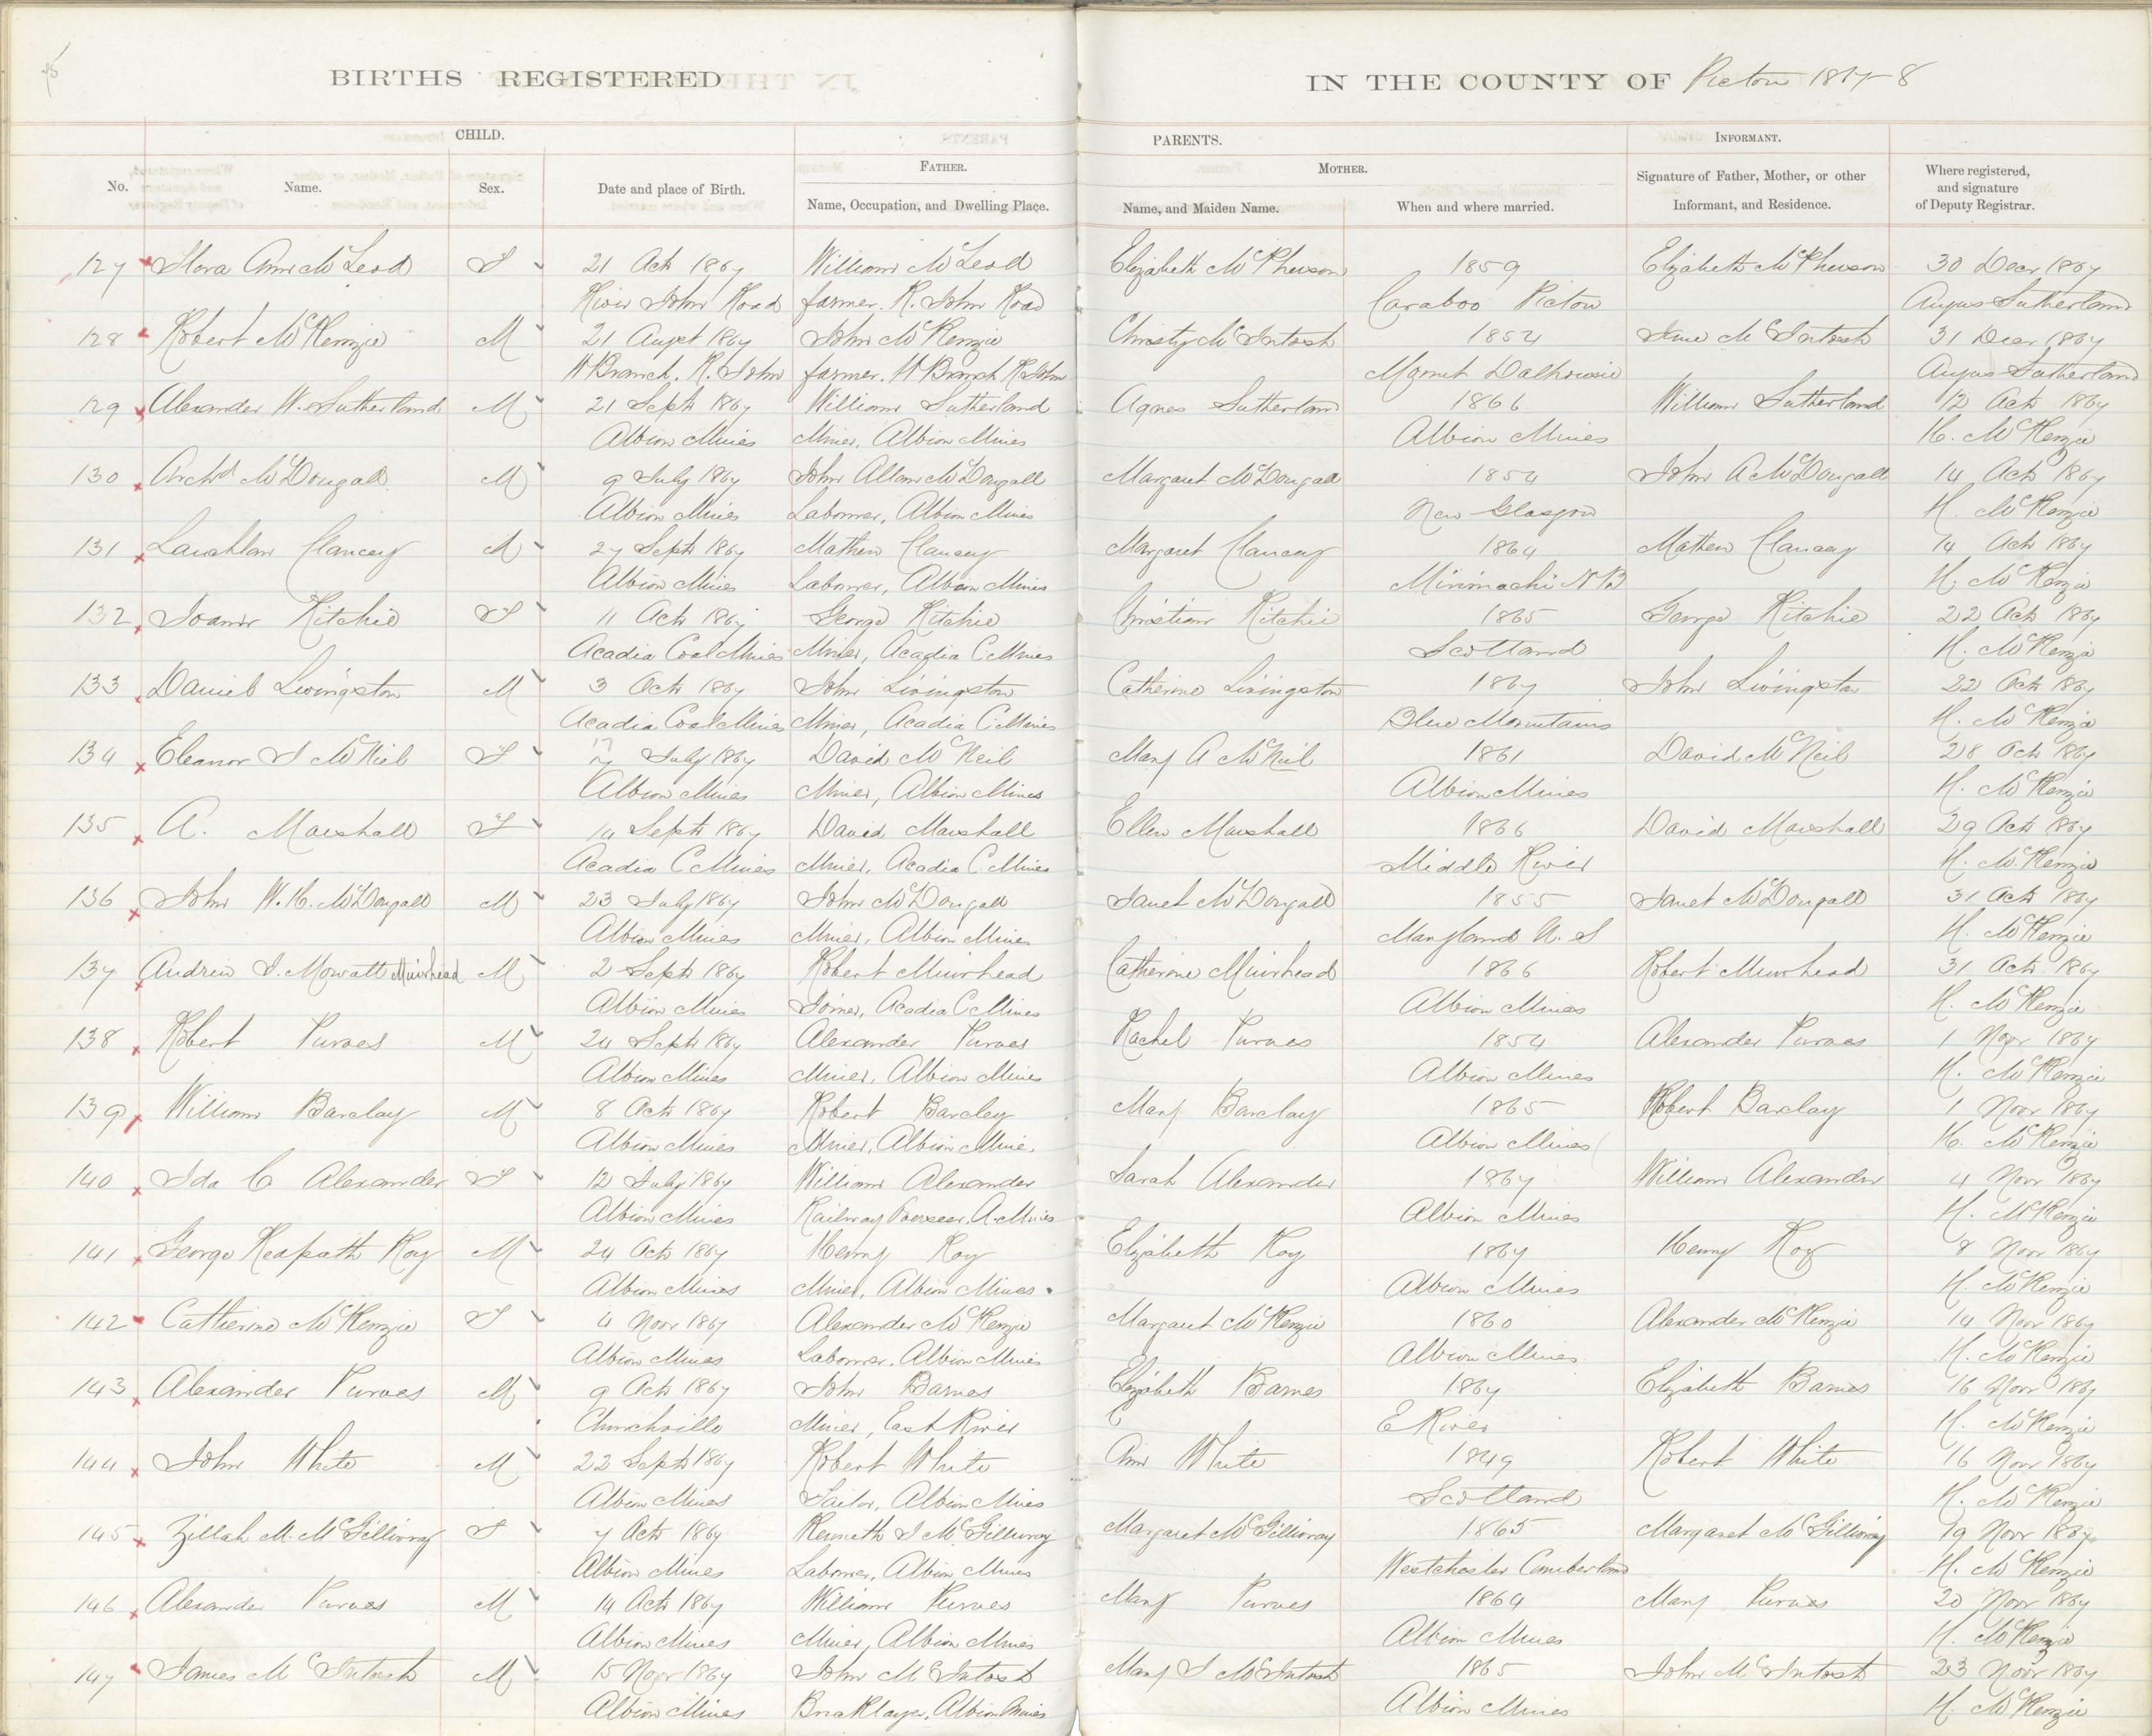 BIRTHS REGISTERED IN THE COUNTY OF Pictou 1867-8
CHILD. PARENTS. INFORMANT.
FATHER. MOTHER.
No. Name. Sex. Date and place of Birth. Name, Occupation, and Dwelling Place. Name, and Maiden Name. When and where married. Signature of Father, Mother, or other Informant, and Residence. Where registered, and signature of Deputy Registrar.
127 Flora Ann McLeod F 21 Oct 1867 William McLeod Elizabeth McPherson 1859 Elizabeth McPherson 30 Decr 1867
River John Road farmer. R. John Road Caraboo Pictou Angus Sutherland
128 Robert McKenzie M 21 Augst 1867 John McKenzie Christy McIntosh 1852 Jane McIntosh 31 Decr 1867
W Branch. R. John farmer. W Branch R John Mount Dalhousie Angus Sutherland
129 Alexander W. Sutherland M 21 Sept 1867 William Sutherland Agnes Sutherland 1866 William Sutherland 12 Oct 1867
Albion Mines Miner, Albion Mines Albion Mines H. McKenzie
130 Archd McDougall M 9 July 1867 John Allan McDougall Margaret McDougall 1854 John A McDougall 14 Oct 1867
Albion Mines Laborer, Albion Mines New Glasgow H. McKenzie
131 Lauchlan Clancey M 27 Sept 1867 Mathew Clancey Margaret Clancey 1864 Mathew Clancey 14 Oct 1867
Albion Mines Laborer, Albion Mines Mirimachi N B H. McKenzie
132 Joann Ritchie F 11 Oct 1867 George Ritchie Christian Ritchie 1865 George Ritchie 22 Oct 1867
Acadia Coal Mines Miner, Acadia C. Mines Scotland H. McKenzie
133 Daniel Livingston M 3 Oct 1867 John Livingston Catherine Livingston 1867 John Livingston 22 Oct 1867
Acadia Coal Mines Miner, Acadia C. Mines Blue Mountains H. McKenzie
134 Eleanor J McNeil F 17 July 1867 David McNeil Mary A McNeil 1861 David McNeil 28 Oct 1867
Albion Mines Miner, Albion Mines Albion Mines H. McKenzie
135 A. Marshall F 14 Sept 1867 David Marshall Ellen Marshall 1866 David Marshall 29 Oct 1867
Acadia C Mines Miner, Acadia C. Mines Middle River H. McKenzie
136 John W. H. McDougall M 23 July 1867 John McDougall Janet McDougall 1855 Janet McDougall 31 Oct 1867
Albion Mines Miner, Albion Mines Maryland U. S H. McKenzie
137 Andrew J. Mowatt Muirhead M 2 Sept 1867 Robert Muirhead Catherine Muirhead 1866 Robert Muirhead 31 Oct 1867
Albion Mines Joiner, Acadia C Mines Albion Mines H. McKenzie
138 Robert Purves M 24 Sept 1867 Alexander Purves Rachel Purves 1854 Alexander Purves 1 Novr 1867
Albion Mines Miner, Albion Mines Albion Mines H. McKenzie
139 William Barclay M 8 Oct 1867 Robert Barclay Mary Barclay 1865 Robert Barclay 1 Novr 1867
Albion Mines Miner, Albion Mine. Albion Mines H. McKenzie
140 Ida C Alexander F 12 July 1867 William Alexander Sarah Alexander 1867 William Alexander 4 Novr 1867
Albion Mines Railway Overseer, A. Mines Albion Mines H. McKenzie
141 George Redpath Roy M 24 Oct 1867 Henry Roy Elizabeth Roy 1867 Henry Roy 8 Novr 1867
Albion Mines Miner, Albion Mines. Albion Mines H. McKenzie
142 Catherine McKenzie F 4 Novr 1867 Alexander McKenzie Margaret McKenzie 1860 Alexander McKenzie 14 Novr 1867
Albion Mines Laborer, Albion Mines Albion Mines H. McKenzie
143 Alexander Purves M 9 Oct 1867 John Barnes Elizabeth Barnes 1867 Elizabeth Barnes 16 Novr 1867
Churchville Miner, East River E River H. McKenzie
144 John White M 22 Sept 1867 Robert White Ann White 1849 Robert White 16 Novr 1867
Albion Mines Sailor, Albion Mines Scotland H. McKenzie
145 Zillah M. McGillivray F 7 Oct 1867 Kenneth J McGillivray Margaret McGillivray 1865 Margaret McGillivray 19 Novr 1867
Albion Mines Laborer, Albion Mines Westchester Cumberland H. McKenzie
146 Alexander Purves M 14 Oct 1867 William Purves Mary Purves 1864 Mary Purves 20 Novr 1867
Albion Mines Miner, Albion Mines Albion Mines H. McKenzie
147 James McIntosh M 15 Novr 1867 John McIntosh Mary J McIntosh 1865 John McIntosh 23 Novr 1867
Albion Mines Bricklayer, Albion Mines Albion Mines H. McKenzie